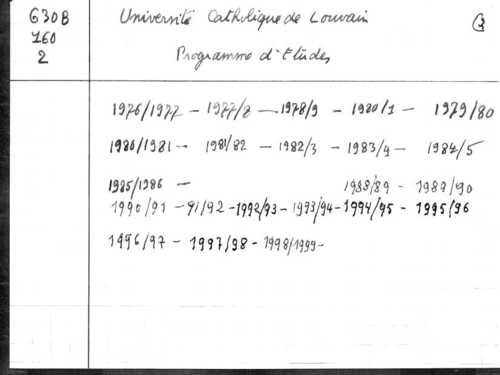 G30B
160
2
Université Catholique de Louvain
3
Programme d'Etudes
1976/1977 - 1977/8 - 1978/9 - 1980/1 - 1979/80
1980/1981 - 1981/82 - 1982/3 - 1983/4 - 1984/5
1985/1986 - 1988/89 - 1989/90
1990/91 - 91/92 - 1992/93 - 1993/94 - 1994/95 - 1995/96
1996/97 - 1997/98 - 1998/1999 -